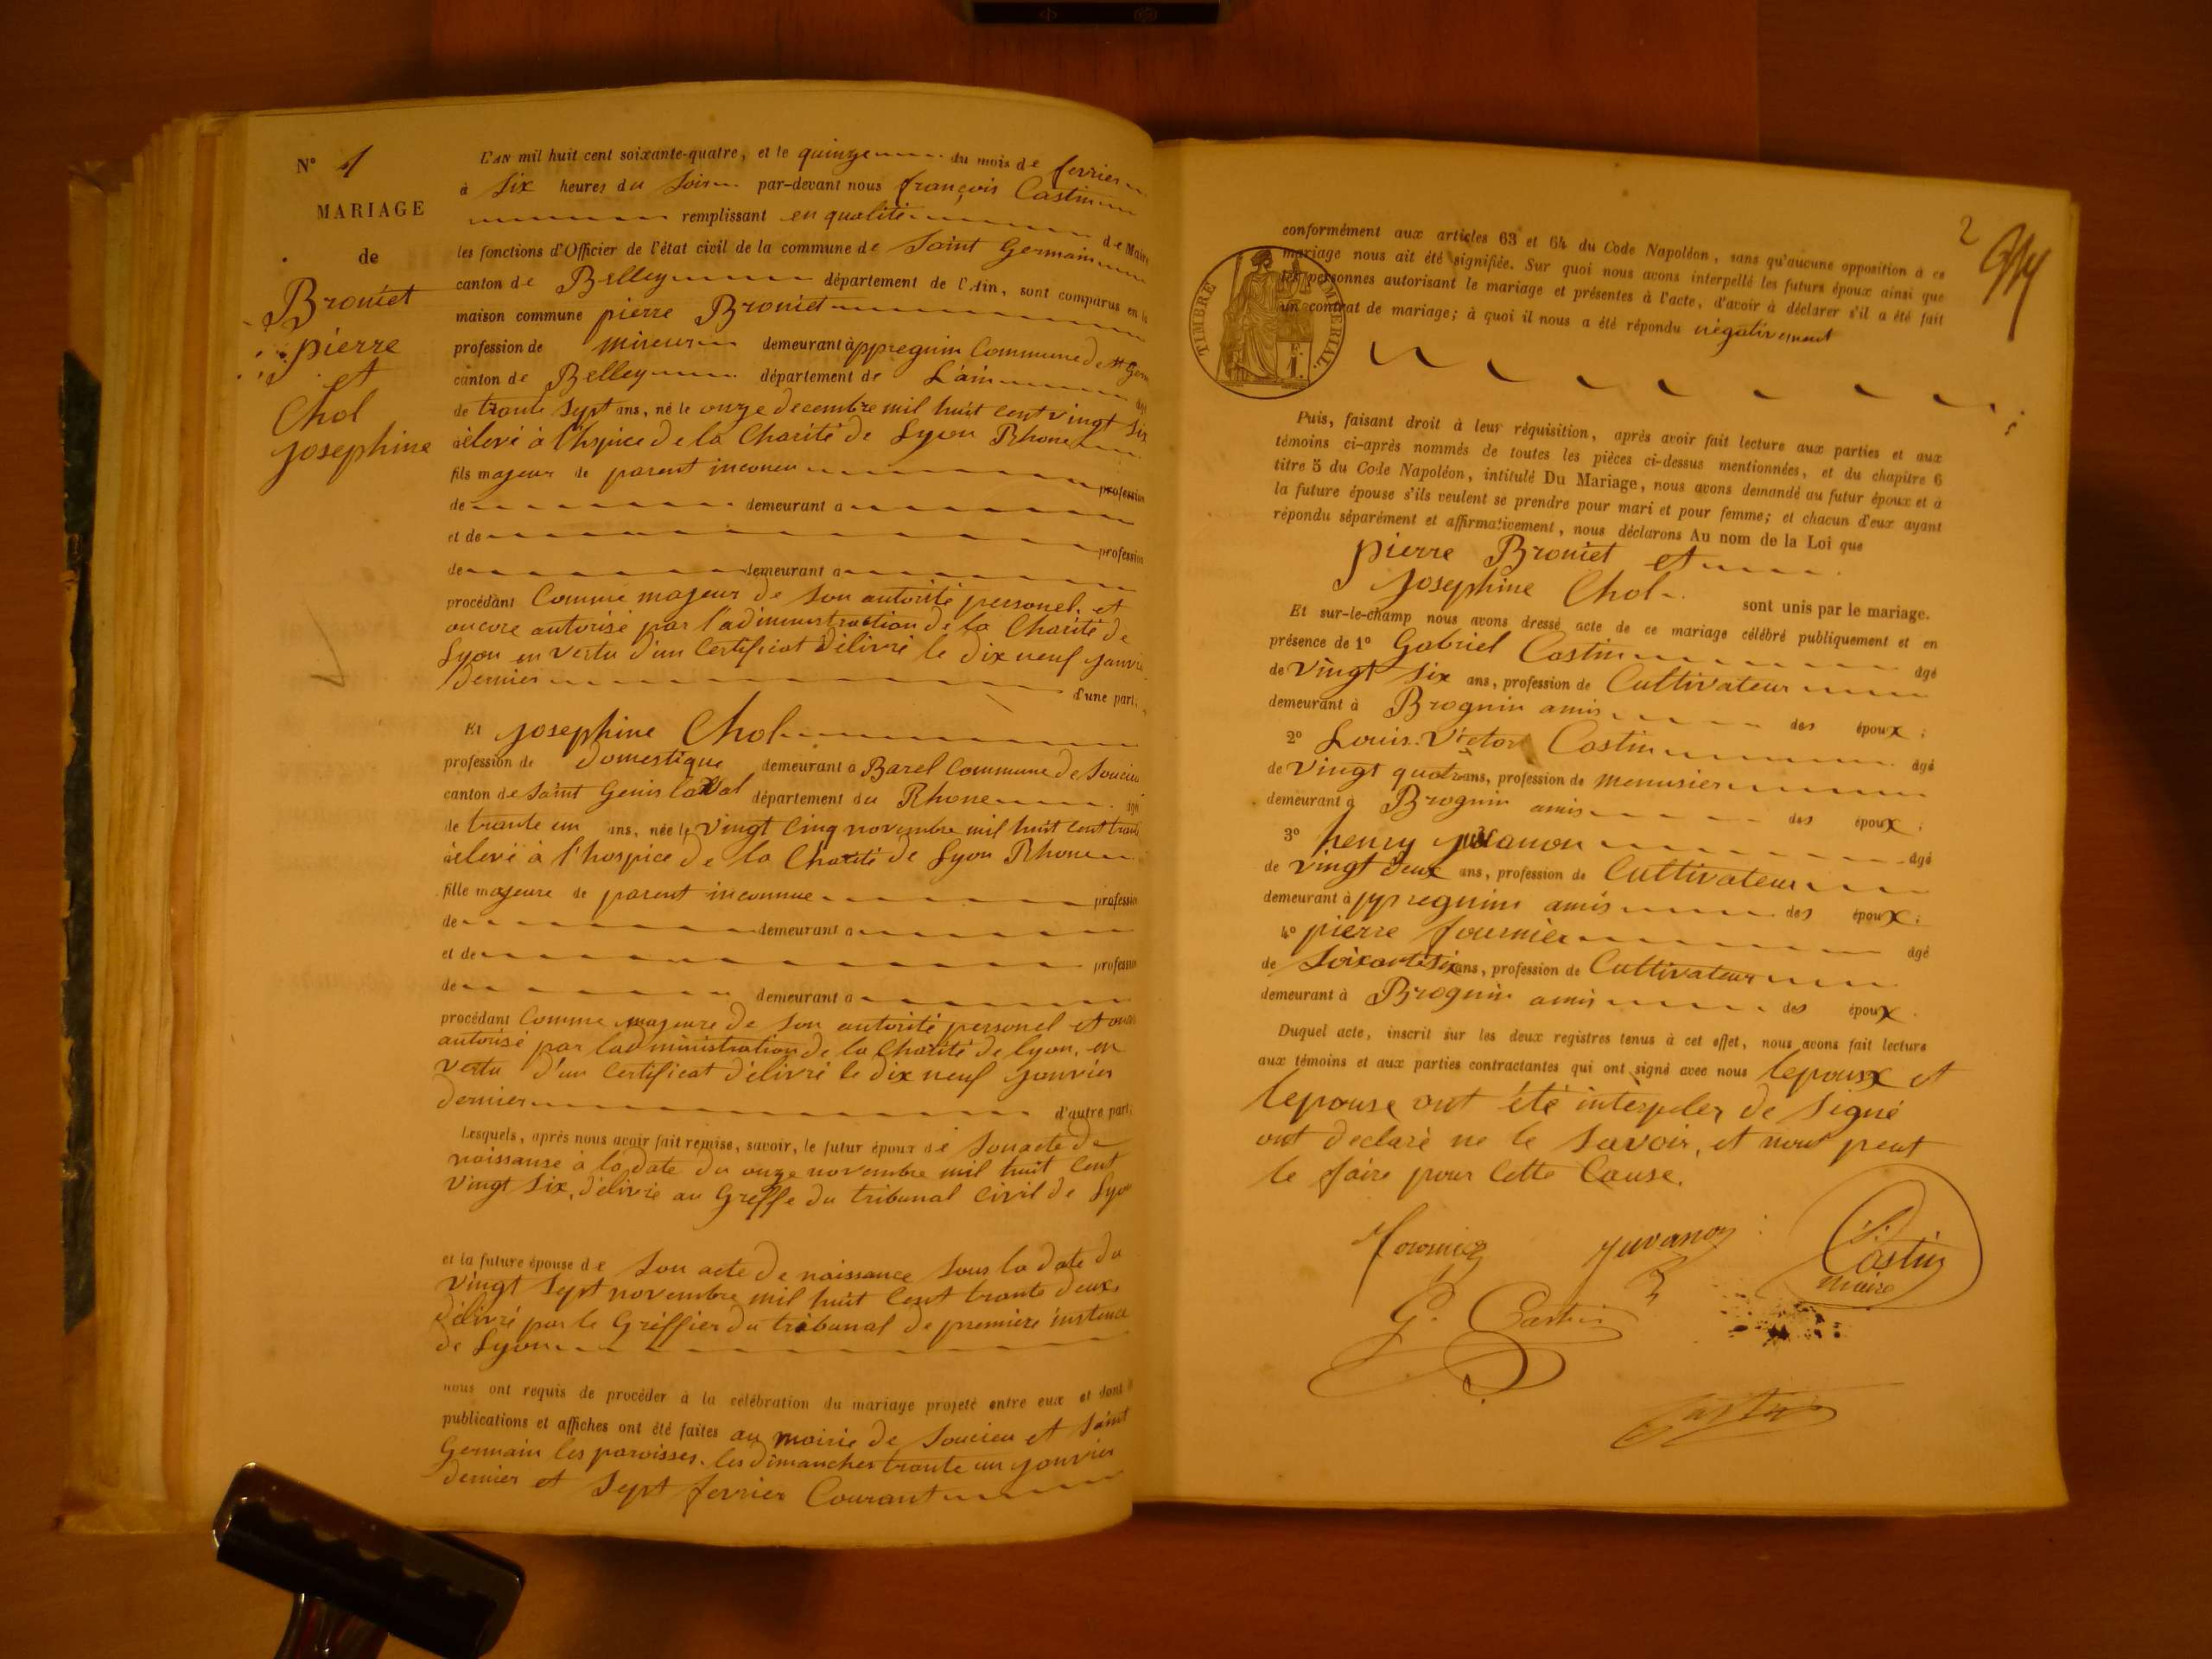 N° 1
MARIAGE
de
Broniet
pierre
et
Chol
Josephine
L'AN mil huit cent soixante-quatre, et le quinze du mois de fevrier
à Six heures du Soir par-devant nous françois Castin
remplissant en qualité de Maire
les fonctions d'Officier de l'état civil de la commune de Saint Germain
canton de Belley département de l'Ain, sont comparus en la
maison commune pierre Broniet
profession de mineur demeurant à appregnin Commune de st Germ
canton de Belley département de L'ain âgé
de trante Sept ans, né le onze decembre mil huit cent vingt Six
élevé à l'hspice de la Charité de Lyon Rhone
fils majeur de parent inconeu profession
de demeurant a
et de profession
de demeurant a
procédant Comme majeur de Son autorité personel, et
oncore autorisé par l'administraction de la Charité de
Lyon en vertu d'un Certificat délivré le Dix neuf janvier
Dernier d'une part;
Et Josephine Chol
profession de Domestique demeurant a Barel Commune de Soucieu
canton de Saint Genis laval département du Rhone âgé
de trante un ans, née le vingt Cinq novembre mil huit cent trante
élevé à l'hospice de la Charité de Lyon Rhone
fille majeure de parent inconnue profession
de demeurant a
et de profession
de demeurant a
procédant Comme majeure de Son autorité personel et onco
autorisé par l'administration de la Charité de lyon, en
vertu d'un Certificat délivré le dix neuf janvier
Dernier d'autre part;
Lesquels, après nous avoir fait remise, savoir, le futur époux de Son acte de
naissanse à la Date du onze novembre mil huit Cent
vingt Six, délivré au Greffe du tribunal Civil de Lyon
et la future épouse de Son acte de naissance Sous la Date du
vingt Sept novembre mil huit Cent trante deux,
délivré par le Gréffier du tribunal de première instence
de Lyon
nous ont requis de procéder à la célébration du mariage projeté entre eux et dont
publications et affiches ont été faites au mairie de Soucieu et Saint
Germain les paroisses, les dimanches trante un janvier
Dernier et Sept fevrier Courant
2
TIMBRE IMPERIAL
conformément aux articles 63 et 64 du Code Napoléon, sans qu'aucune opposition à ce
mariage nous ait été signifiée. Sur quoi nous avons interpellé les futurs époux ainsi que
les personnes autorisant le mariage et présentes à l'acte, d'avoir à déclarer s'il a été fait
un contrat de mariage; à quoi il nous a été répondu négativement
Puis, faisant droit à leur réquisition, après avoir fait lecture aux parties et aux
témoins ci-après nommés de toutes les pièces ci-dessus mentionnées, et du chapitre 6
titre 5 du Code Napoléon, intitulé Du Mariage, nous avons demandé au futur époux et à
la future épouse s'ils veulent se prendre pour mari et pour femme; et chacun d'eux ayant
répondu séparément et affirmativement, nous déclarons Au nom de la Loi que
pierre Broniet et
Josephine Chol sont unis par le mariage.
Et sur-le-champ nous avons dressé acte de ce mariage célébré publiquement et en
présence de 1° Gabriel Castin âgé
de Vingt Six ans, profession de Cultivateur
demeurant à Brognin amis des époux;
2° Louis Victor Castin âgé
de Vingt quatre ans, profession de menusier
demeurant à Brognin amis des époux;
3° henry juvanon âgé
de vingt deux ans, profession de Cultivateur
demeurant à appregnin amis des époux;
4° pierre fournier âgé
de Soixante Six ans, profession de Cultivateur
demeurant à Brognin amis des époux
Duquel acte, inscrit sur les deux registres tenus à cet effet, nous avons fait lecture
aux témoins et aux parties contractantes qui ont signé avec nous lepoux et
lepouse ont été interpeler de Signé
ont declaré ne le Savoir, et nont peut
le faire pour Cette Cause.
fournier juvanon
Castin
maire
G. Castin
Castin